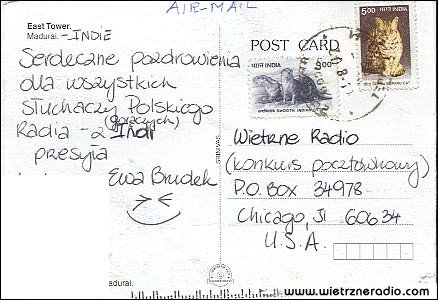 AIR-MAIL
East Tower.
Madurai. - INDIE
Serdeczne pozdrowienia
dla wszystkich
słuchaczy Polskiego
Radia - z (gorących) Indi
przesyła
Ewa Brudek
POST CARD
भारत INDIA
5.00
भारत INDIA
5.00
SMOOTH INDIAN
LEOPARD CAT
Wietrzne Radio
(konkurs pocztówkowy)
P.O. BOX 34978
Chicago, Il 60634
U.S.A.
SRINIVAS
adurai.
www.wietrzneradio.com